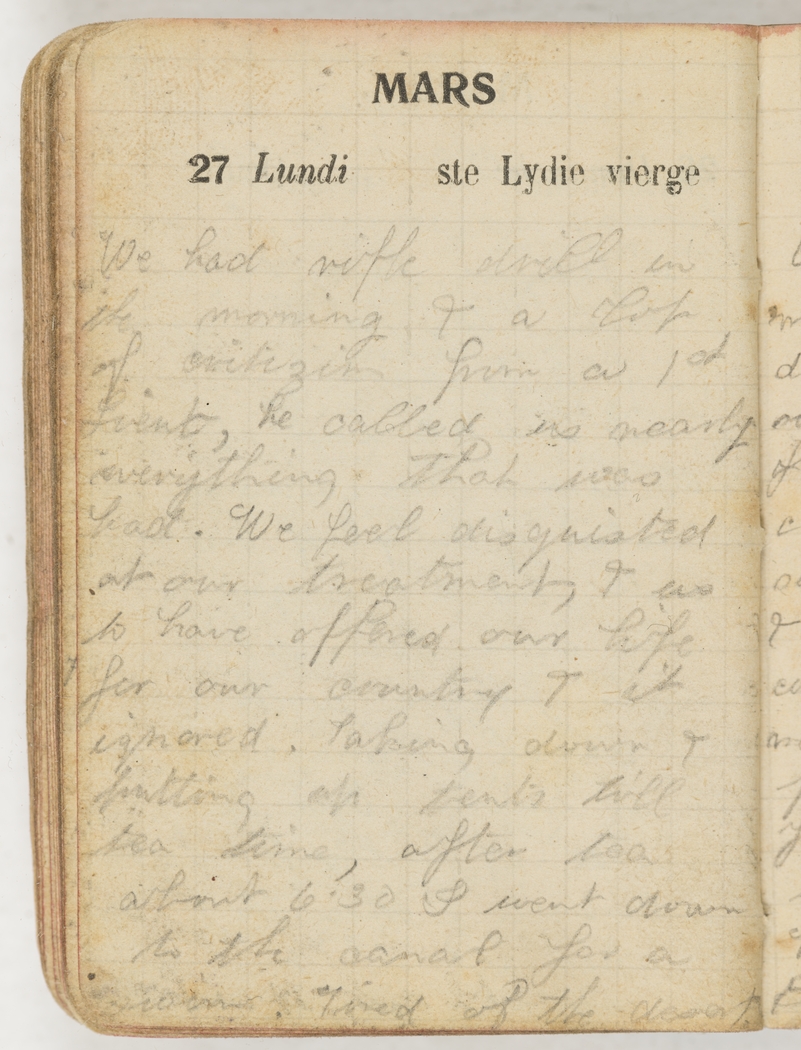 MARS
27 Lundi ste Lydie vierge
We had rifle drill in
the morning & a lot
of critizim from a 1st
Lieut, he called us nearly
everything that was
bad. We feel disguisted
at our treatment, & us
to have offered our life
for our country & it
ignored. Taking down &
putting up tents till
tea time, after tea
about 6.30 I went down
to the canal for a
swim. Tired of the desert